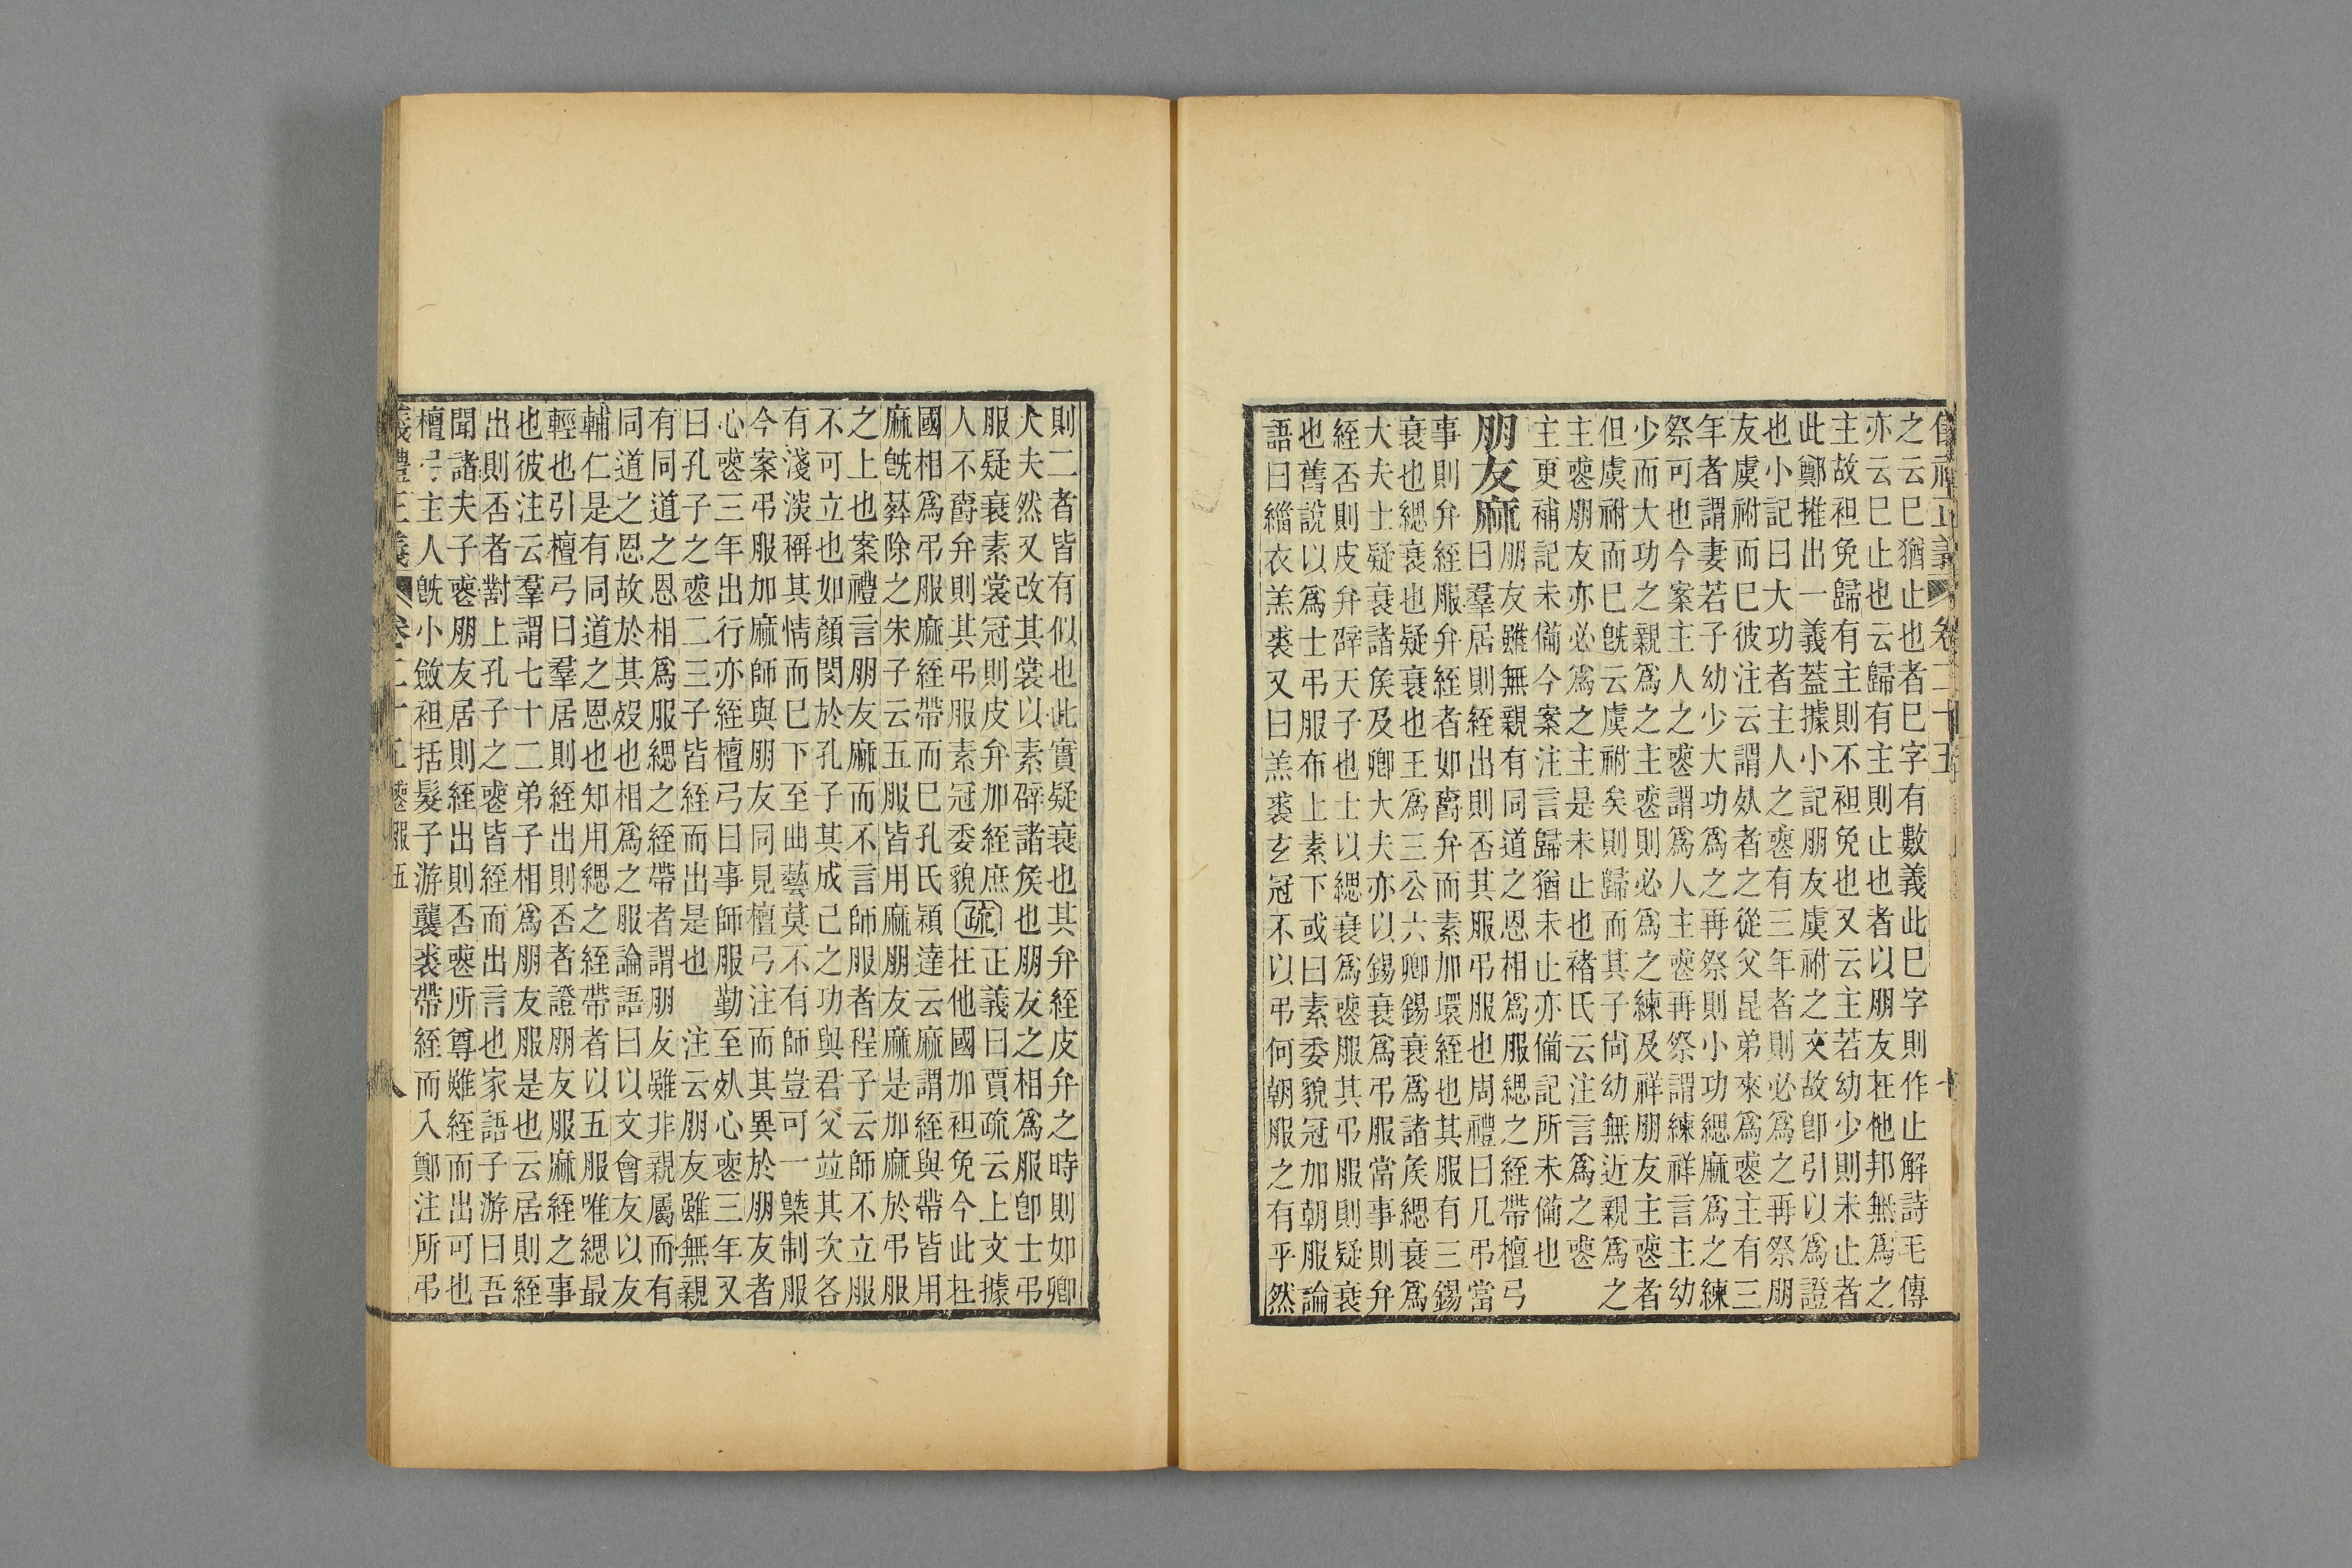 正義 卷二十五
之云巳猶止也者巳字有數義此巳字則作止解詩毛傳
亦云巳止也云歸有主則止也者以朋友在他邦無爲之
主故袒免歸有主則不袒免也又云主若幼少則未止者
此鄭推出一義蓋據小記朋友虞祔之文故卽引以爲證
也小記曰大功者主人之喪有三年者則必爲之再祭朋
友虞祔而巳彼注云謂死者之從父昆弟來爲喪主有三
年者謂妻若子幼少大功爲之再祭則小功緦麻爲之練
祭可也今案主人之喪謂爲人主喪再祭謂練祥言主幼
少而大功之親爲之主喪則必爲之練及祥朋友主喪者
但虞祔而巳旣云虞祔矣則歸而其子尙幼無近親爲之
主喪朋友亦必爲之主是未止也褚氏云注言爲之喪
主更補記未備今案注言歸猶未止亦備記所未備也
朋友麻
朋友雖無親有同道之恩相爲服緦之絰帶檀弓
曰羣居則絰出則否其服弔服也周禮曰凡弔當
事則弁絰服弁絰者如爵弁而素加環絰也其服有三錫
衰也緦衰也疑衰也王爲三公六卿錫衰爲諸侯緦衰爲
大夫士疑衰諸侯及卿大夫亦以錫衰爲弔服當事則弁
絰否則皮弁辟天子也士以緦衰爲喪服其弔服則疑衰
也舊說以爲士弔服布上素下或曰素委貌冠加朝服論
語曰緇衣羔裘又曰羔裘玄冠不以弔何朝服之有乎然
則二者皆有似也此實疑衰也其弁絰皮弁之時則如卿
大夫然又改其裳以素辟諸侯也朋友之相爲服卽士弔
服疑衰素裳冠則皮弁加絰庶
人不爵弁則其弔服素冠委貌
疏
正義曰賈疏云上文據
在他國加袒免今此在
國相爲弔服麻絰帶而巳孔氏穎達云麻謂絰與帶皆用
麻旣葬除之朱子云五服皆用麻朋友麻是加麻於弔服
之上也案禮言朋友麻而不言師服者程子云師不立服
不可立也如顏閔於孔子其成己之功與君父竝其次各
有淺淡稱其情而巳下至曲藝莫不有師豈可一槩制服
今案弔服加麻師與朋友同見檀弓注而其異於朋友者
心喪三年出行亦絰檀弓曰事師服勤至死心喪三年又
曰孔子之喪二三子皆絰而出是也 注云朋友雖無親
有同道之恩相爲服緦之絰帶者謂朋友雖非親屬而有
同道之恩故於其歿也相爲之服論語曰以文會友以友
輔仁是有同道之恩也知用緦之絰帶者以五服唯緦最
輕也引檀弓曰羣居則絰出則否者證朋友服麻絰之事
也彼注云羣謂七十二弟子相爲朋友服是也云居則絰
出則否者對上孔子之喪皆絰而出言也家語子游曰吾
聞諸夫子喪朋友居則絰出則否喪所尊雖絰而出可也
檀弓主人旣小斂袒括髮子游襲裘帶絰而入鄭注所弔
儀禮正義 卷二十五 喪服五 八